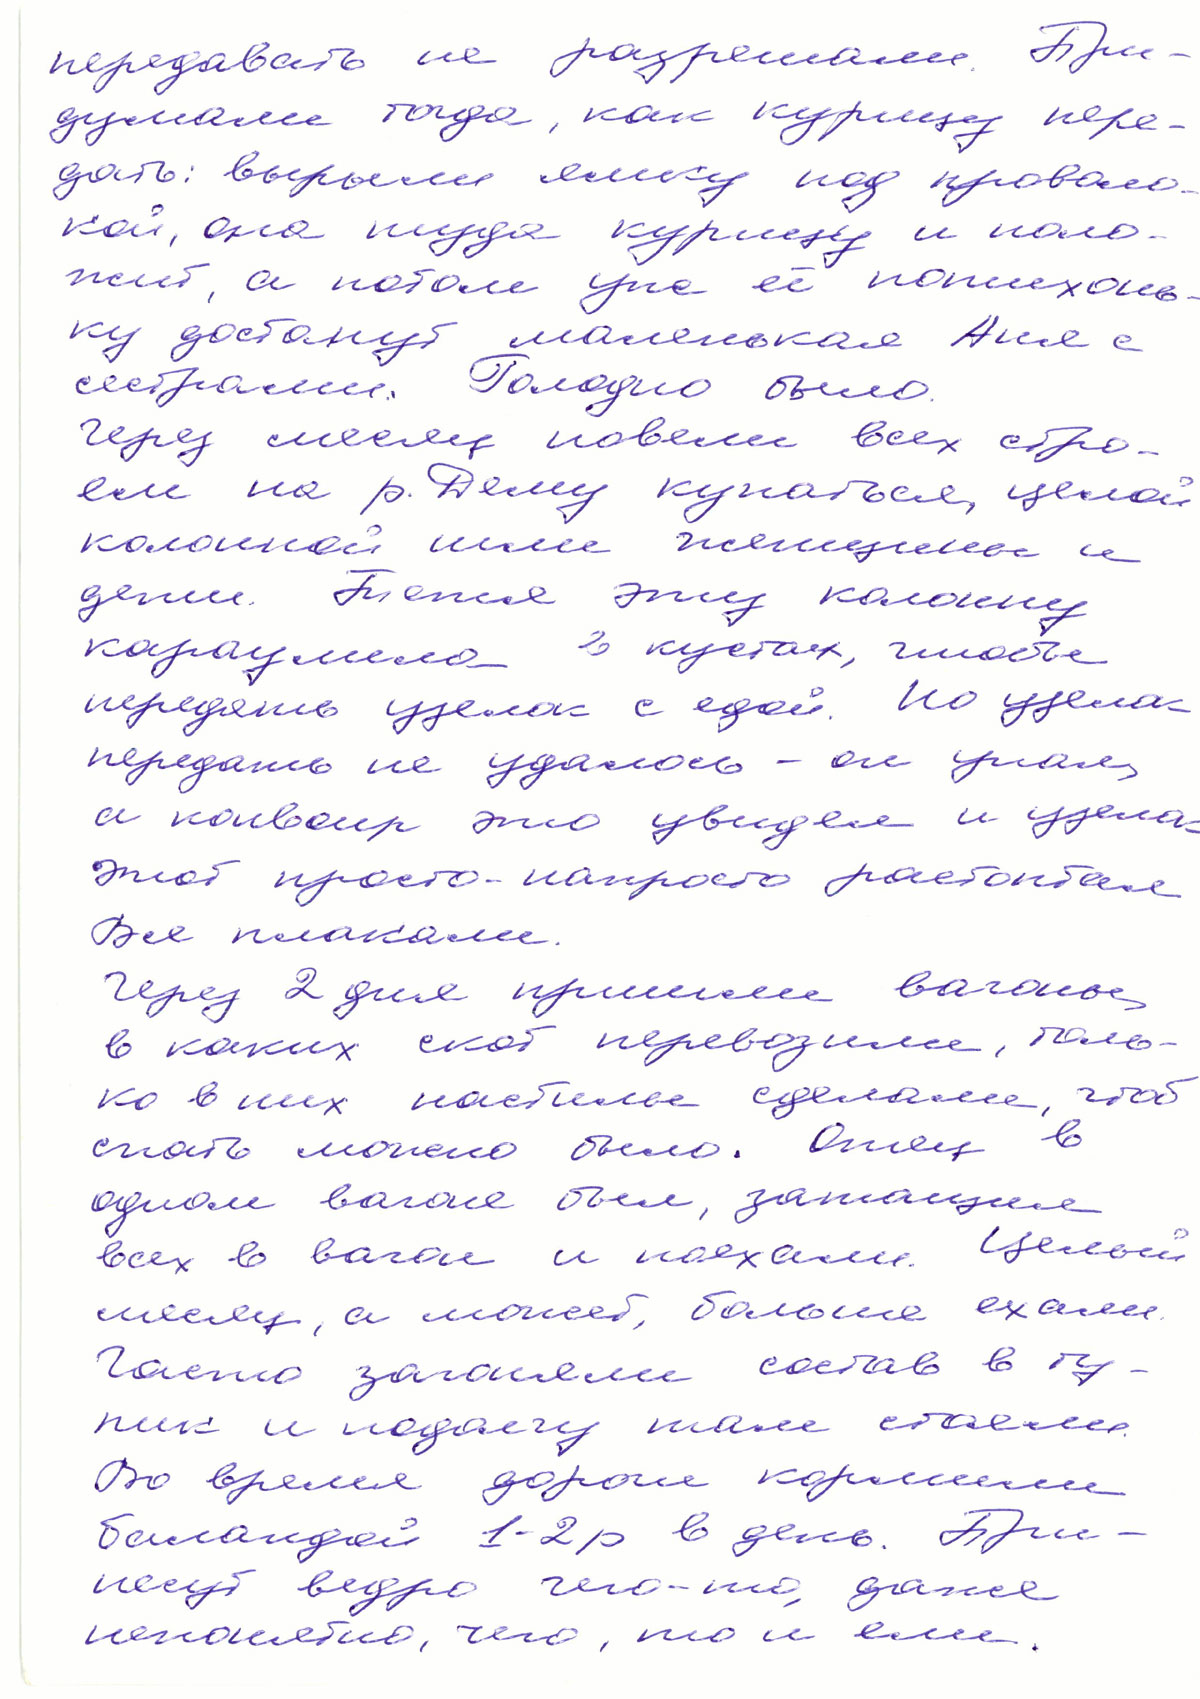 передавать не разрешали. При-
думали тогда, как курицу пере-
дать: вырыли ямку под проволо-
кой, она туда курицу и поло-
жит, а потом уже её потихонь-
ку достанут маленькая Аня с
сестрами. Голодно было.
Через месяц повели всех стро-
ем на р. Дему купаться, целой
колонной шли женщины и
дети. Тетя эту колонну
караулила в кустах, чтобы
передать узелок с едой. Но узелок
передать не удалось - он упал,
а конвоир это увидел и узелок
этот просто-напросто растоптал
Все плакали.
Через 2 дня пришли вагоны,
в каких скот перевозили, толь-
ко в них настилы сделали, чтоб
спать можно было. Отец в
одном вагоне был, затащил
всех в вагон и поехали. Целый
месяц, а может, больше ехали.
Часто загоняли состав в ту-
пик и подолгу там стояли.
Во время дороги кормили
баландой 1-2 р в день. При-
несут ведро чего-то, даже
непонятно, чего, то и ели.